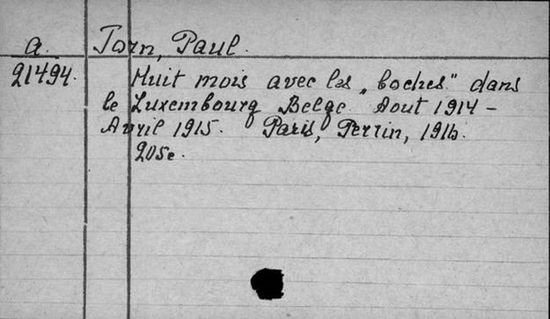 a. Torn, Paul.
21494. Huit mois avec les „boches" dans
le Luxembourg Belge. Aout 1914 –
Avril 1915. Paris, Perrin, 1916.
205e.